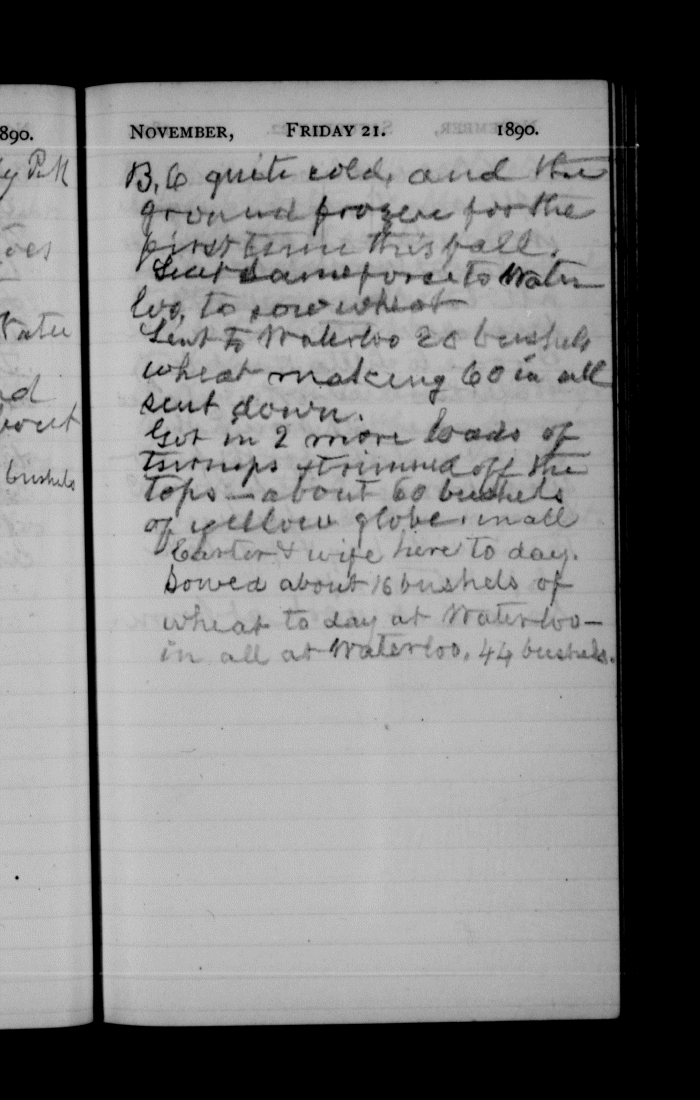 890.
NOVEMBER, FRIDAY 21. 1890.
B, 6 quite cold, and the
ground frozen for the
first time this fall.
Sent same force to Water
loo, to sow wheat
Sent to Waterloo 20 bushels
wheat making 60 in all
sent down.
Got in 2 more loads of
turnips & trimmed off the
tops — about 60 bushels
of yellow globe, in all
Carter & wife here to day.
Sowed about 16 bushels of
wheat to day at Waterloo —
in all at Waterloo, 44 bushels.
bushels